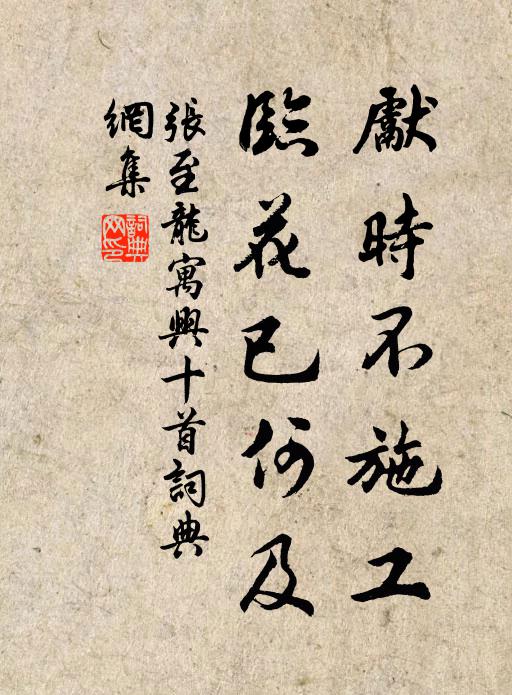 獻時不施工
臨花已何及
張至龍寓興十首詞典
網集
詞典網印